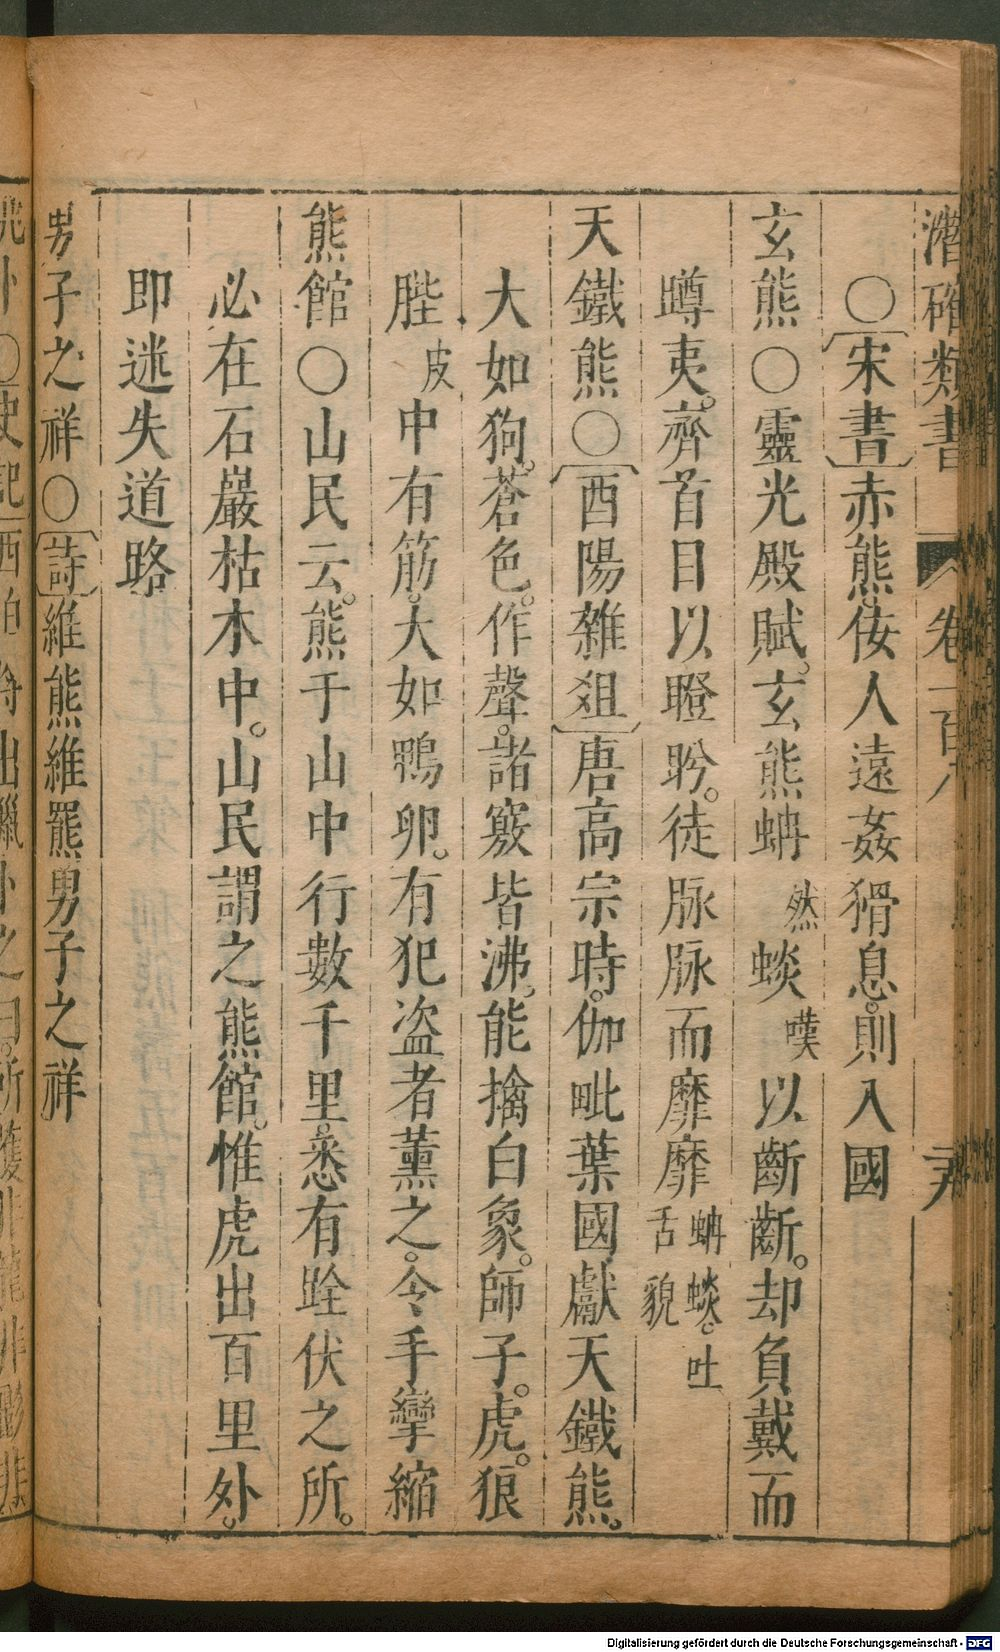 潛確類書 卷一百八
○宋書赤熊佞人遠姦猾息則入國
玄熊○靈光殿賦玄熊蚺然蛛嘆以齗齗却負戴而
蹲夷齊首目以瞪眄徒脉脉而靡靡蚺蛛吐舌貌
天鐵熊○酉陽雜俎唐高宗時伽毗葉國獻天鐵熊
大如狗蒼色作聲諸獸皆沸能擒白象師子虎狼
䏶皮中有筋大如鴨卵有犯盜者薰之令手攣縮
熊館○山民云熊于山中行數千里悉有跧伏之所
必在石巖枯木中山民謂之熊館惟虎出百里外
即迷失道路
男子之祥○詩維熊維羆男子之祥
Digitalisierung gefördert durch die Deutsche Forschungsgemeinschaft - DFG